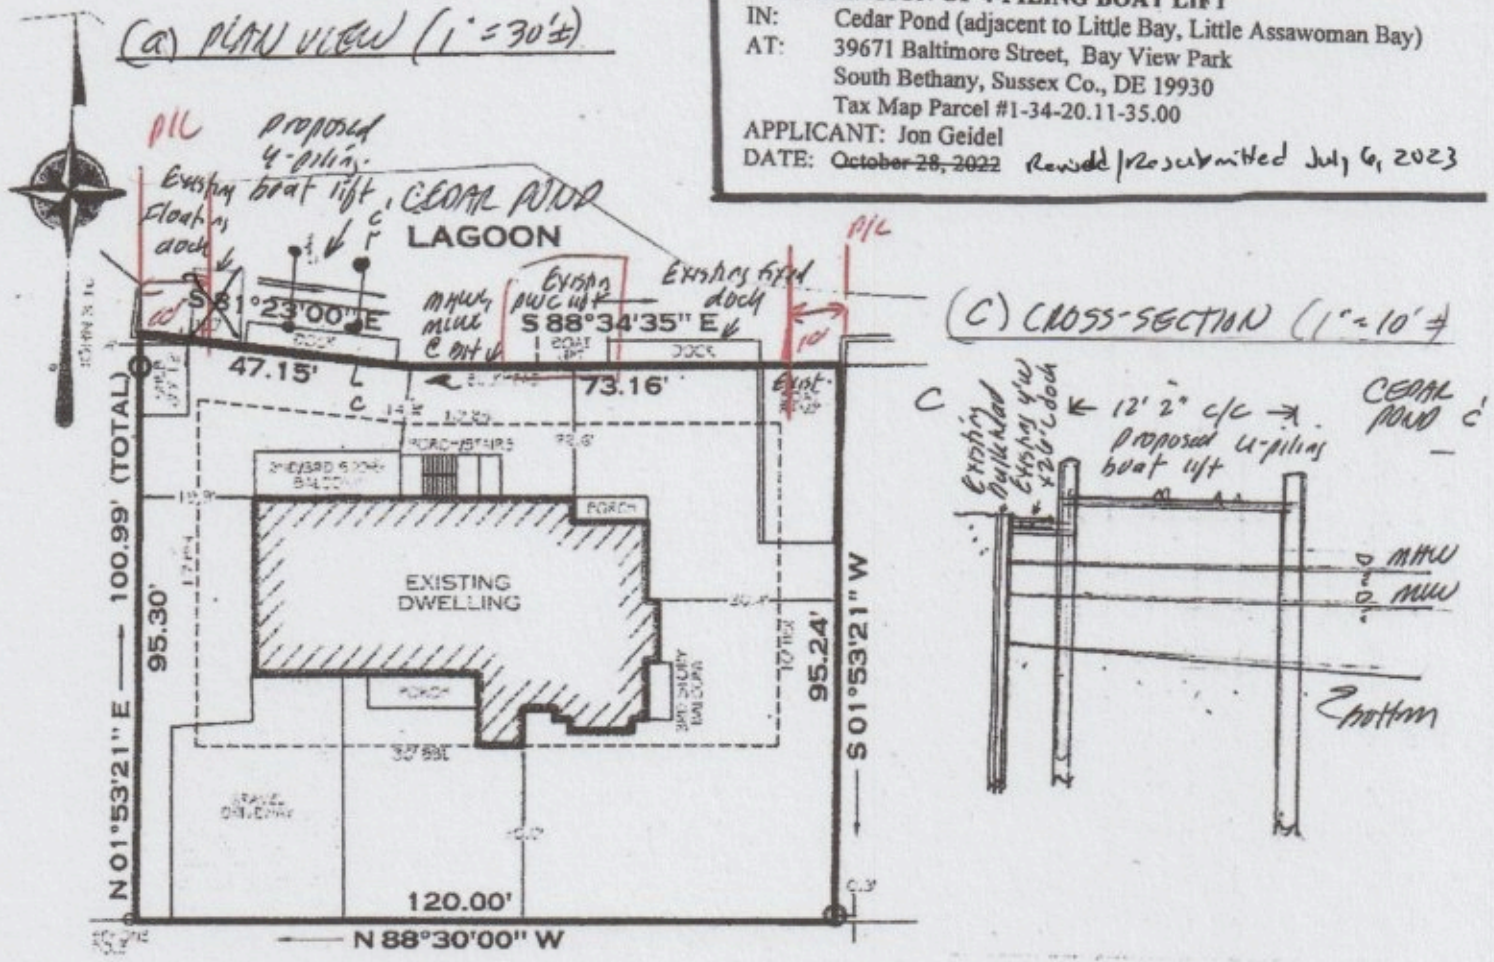 (a) PLAN VIEW (1" = 30'±)
4-PILING BOAT LIFT
IN: Cedar Pond (adjacent to Little Bay, Little Assawoman Bay)
AT: 39671 Baltimore Street, Bay View Park
South Bethany, Sussex Co., DE 19930
Tax Map Parcel #1-34-20.11-35.00
APPLICANT: Jon Geidel
DATE: October 28, 2022 Revised/Resubmitted July 6, 2023
P/L
Proposed
4-piling
boat lift
Existing
Floating
dock
c'
CEDAR POND
LAGOON
P/L
Existing
PWC lift
Existing fixed
dock
10'
10'
S 81°23'00" E
MHW,
MLW
@ BH
S 88°34'35" E
DOCK
BOAT
LIFT
DOCK
47.15'
c
BULKHEAD
73.16'
Exist.
PORCH/STAIRS
2ND/3RD STORY
BALCONY
PORCH
EXISTING
DWELLING
PORCH
3RD STORY
BALCONY
30' BSL
GRAVEL
DRIVEWAY
N 01°53'21" E 100.99' (TOTAL)
95.30'
95.24'
S 01°53'21" W
120.00'
N 88°30'00" W
0.3'
(C) CROSS-SECTION (1" = 10'±)
C
Existing
bulkhead
Existing 4'W
x 26' L dock
12' 2" c/c
Proposed 4-piling
boat lift
CEDAR
POND
c'
MHW
MLW
bottom